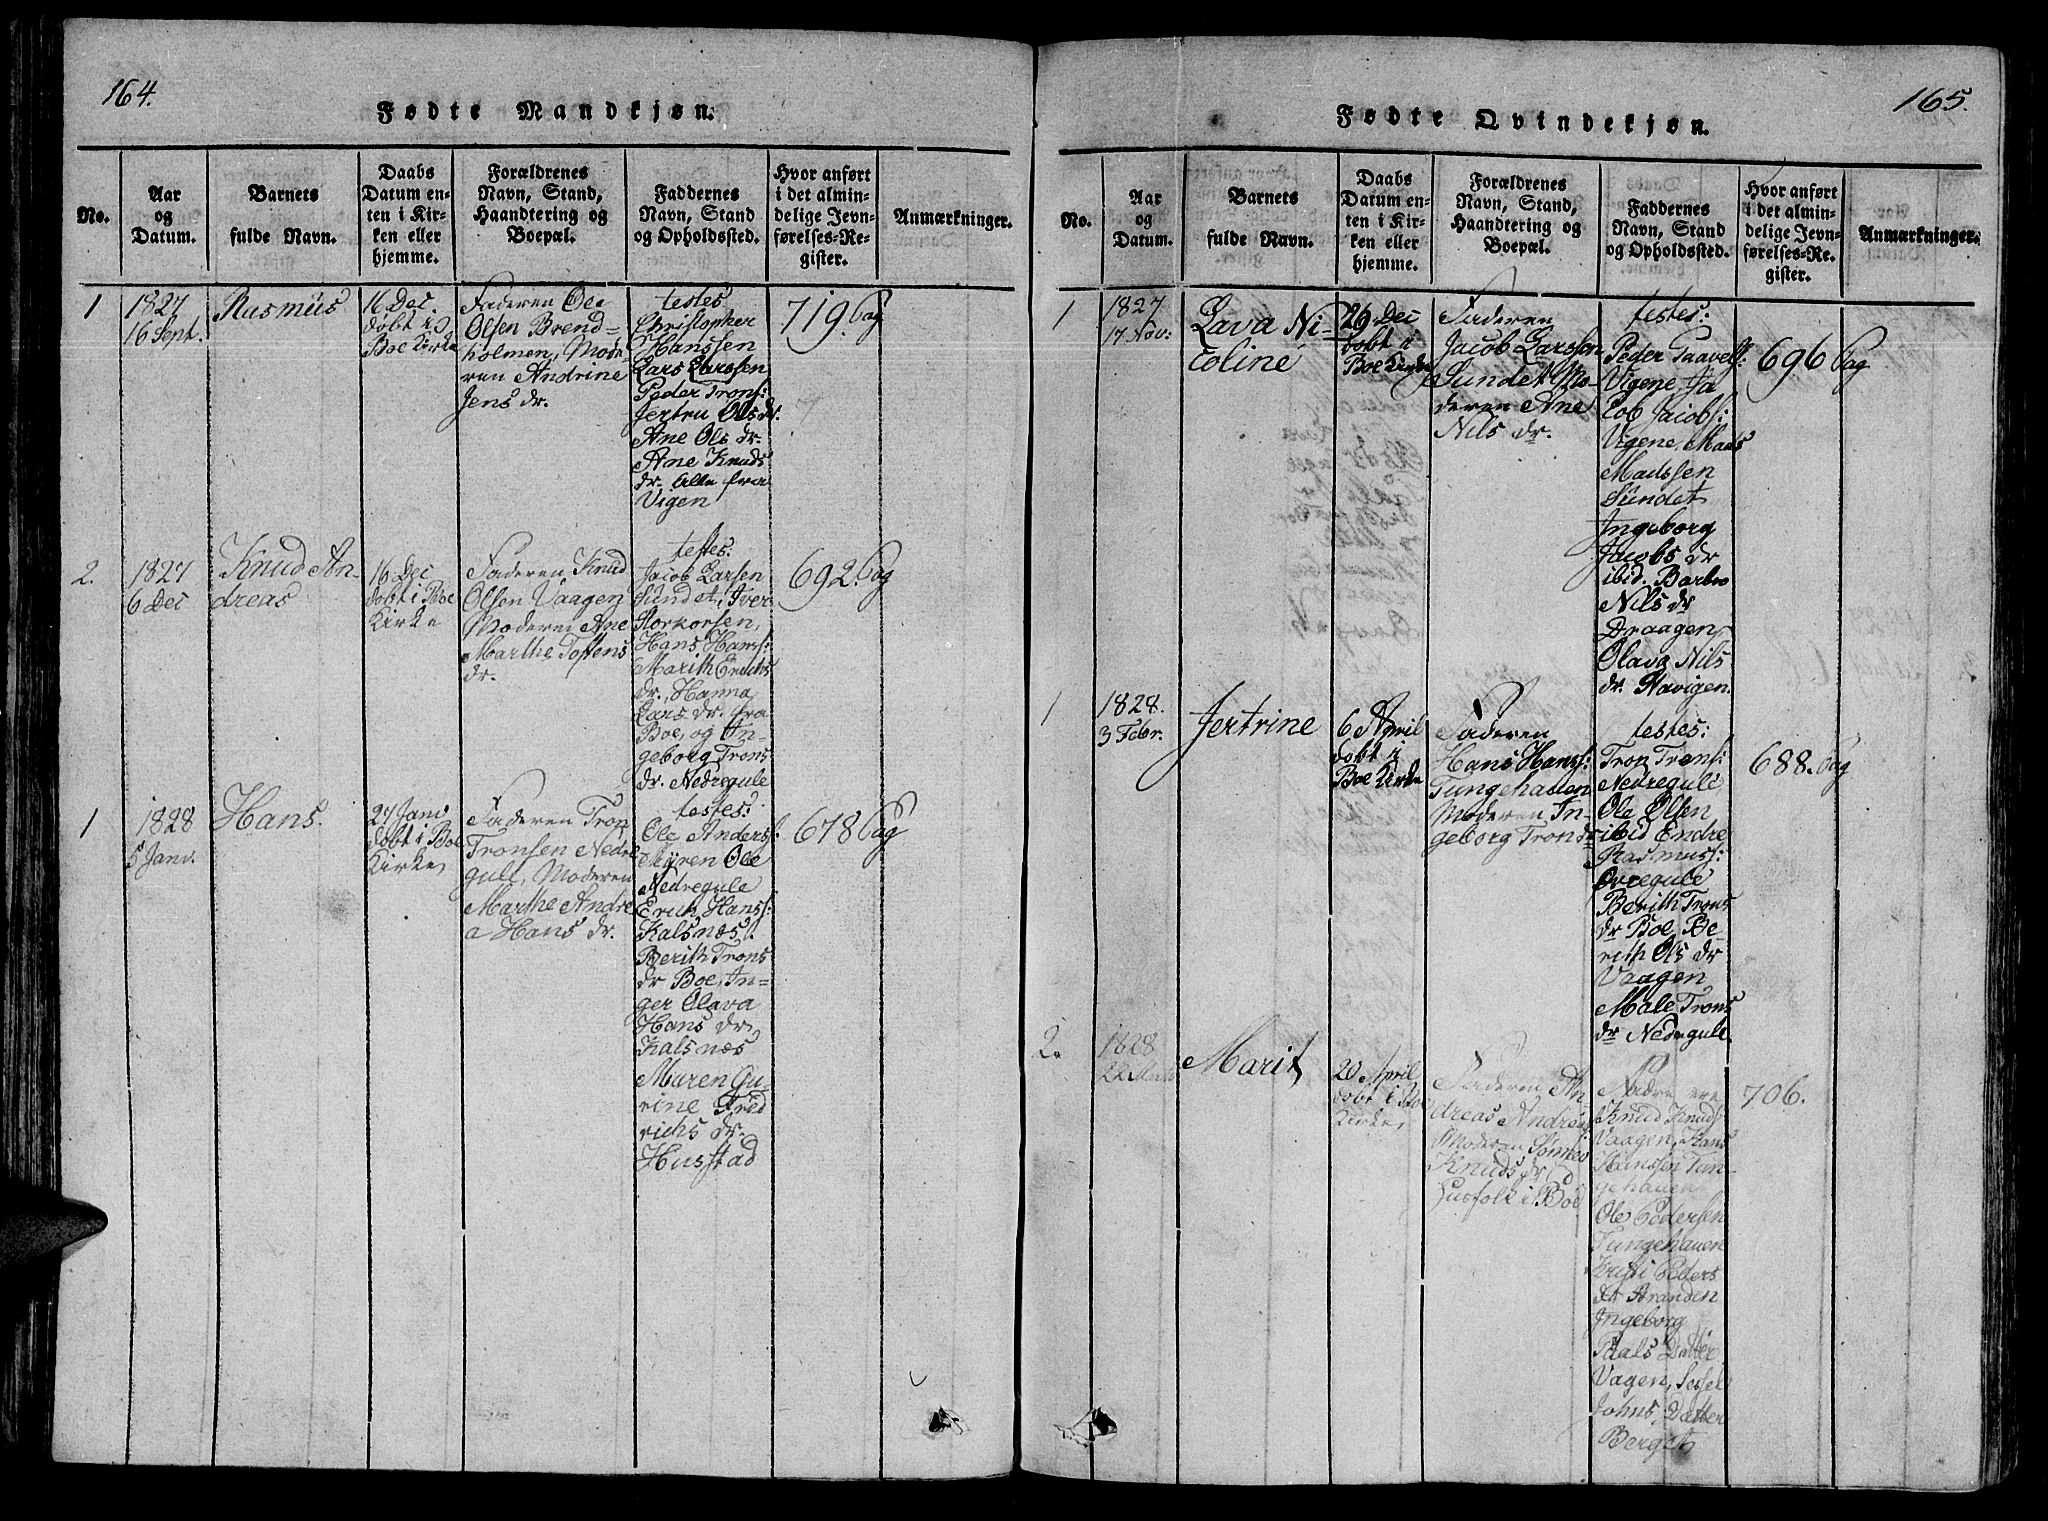 164.
Fødte Mandkjøn.
No.
Aar
og
Datum.
Barnets
fulde Navn.
Daabs
Datum en-
ten i Kir-
ken eller
hjemme.
Forældrenes
Navn, Stand,
Haandtering og
Boepæl.
Faddernes
Navn, Stand
og Opholdssted.
Hvor anført
i det almin-
delige Jevn-
førelses-Re-
gister.
Anmærkninger.
1
1827
16 Sept.
Rasmus
16 Dec
døbt i
Boe Kirke
Faderen Ole
Olsen Brend-
holmen, Mode-
ren Andrine
Jens dr.
testes
Christopher
Hanssen
Lars Larssen
Peder Trons:
Jertru Ols dr.
Ane Ols dr.
Ane Knuds
dr. alle fra
Vigen
719 Pag
2.
1827
6 Dec
Knud An-
dreas
16 Dec
døbt i Boe
Kirke
Faderen Knud
Olsen Vaagen
Moderen Ane
Marthe Tostens
dr.
testes:
Jacob Larsen
Sundet, Iver
Storkorsen,
Hans Hanss:
Marith Erichs
dr., Hanna
Lars dr. fra
Boe, og In-
geborg Trons
dr. Nedregule
692 Pag
1
1828
5 Janv.
Hans.
27 Janv
døbt i Boe
Kirke
Faderen Tron
Tronsen Nedre
gule, Moderen
Marthe Andre
a Hans dr.
testes:
Ole Anderss:
Myren Ole
Nedregule
Erich Hanss:
Kalsnæs
Berith Trons
dr Boe, In-
ger Olava
Hans dr
Kalsnæs
Maren Gu-
rine Fred
richs dr.
Hustad
678 Pag
165.
Fødte Qvindekjøn.
No.
Aar
og
Datum.
Barnets
fulde Navn.
Daabs
Datum en-
ten i Kir-
ken eller
hjemme.
Forældrenes
Navn, Stand,
Haandtering og
Boepæl.
Faddernes
Navn, Stand
og Opholdssted.
Hvor anført
i det almin-
delige Jevn-
førelses-Re-
gister.
Anmærkninger.
1
1827
17 Nov:
Lava Ni-
coline
26 Dec
døbt i
Boe Kirke
Faderen
Jacob Larssen
Sundet Mo-
deren Ane
Nils dr.
testes:
Peder Paavels:
Vigene, Ja
cob Jacobs:
Vigene, Mads
Madssen
Sundet
Ingeborg
Jacobs dr
ibid. Barbro
Nils dr
Draagen,
Olava Nils
dr. Havigen.
696 Pag
1
1828.
3 Febr.
Jertrine
6 April
døbt i
Boe Kirke
Faderen
Hans Hanss:
Tungehauen
Moderen In-
geborg Trons dr
testes:
Tron Trons:
Nedregule
Ole Olsen
ibid Endre
Rasmuss:
Øvregule
Berith Trons
dr Boe, Be
rith Ols dr
Vaagen
Male Trons
dr Nedregule.
688. Pag
2.
1828
22 Marts
Marit
20 April
døbt i Boe
Kirke,
Faderen An
dreas Andreæ
Moderen
Knuds dr,
Husfolk i Boe
Fadre ere
Knud Knuds
Vaagen, Hans
Hanssen Tun-
gehauen
Ole Pedersen
Tungehauen
Kristi Peders
dr Stranden
Ingeborg
Paals Datter
Vagen, Sessel
Johns Datter
Berget
706.